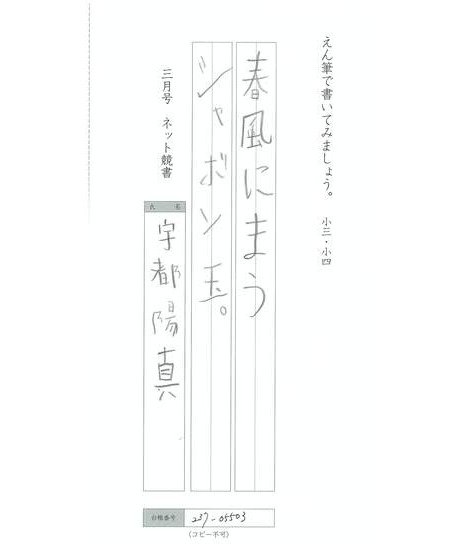 えん筆で書いてみましょう。 小三・小四
春風にまう
シャボン玉。
三月号 ネット競書
氏 名
宇都陽真
台帳番号 237-05503
(コピー不可)